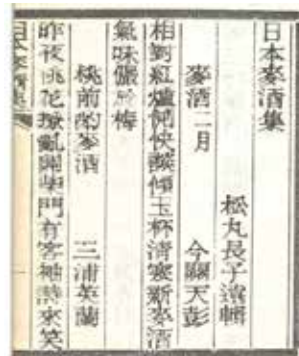 日本麥酒集
松丸長子演輯
麥酒二月 今關天彭
相對紅爐側快酸傾玉杯清寒新麥酒
氣味儷於梅
桃前酌麥酒 三浦英蘭
昨夜桃花撩亂開柴門有客袖詩來笑
日本麥酒集